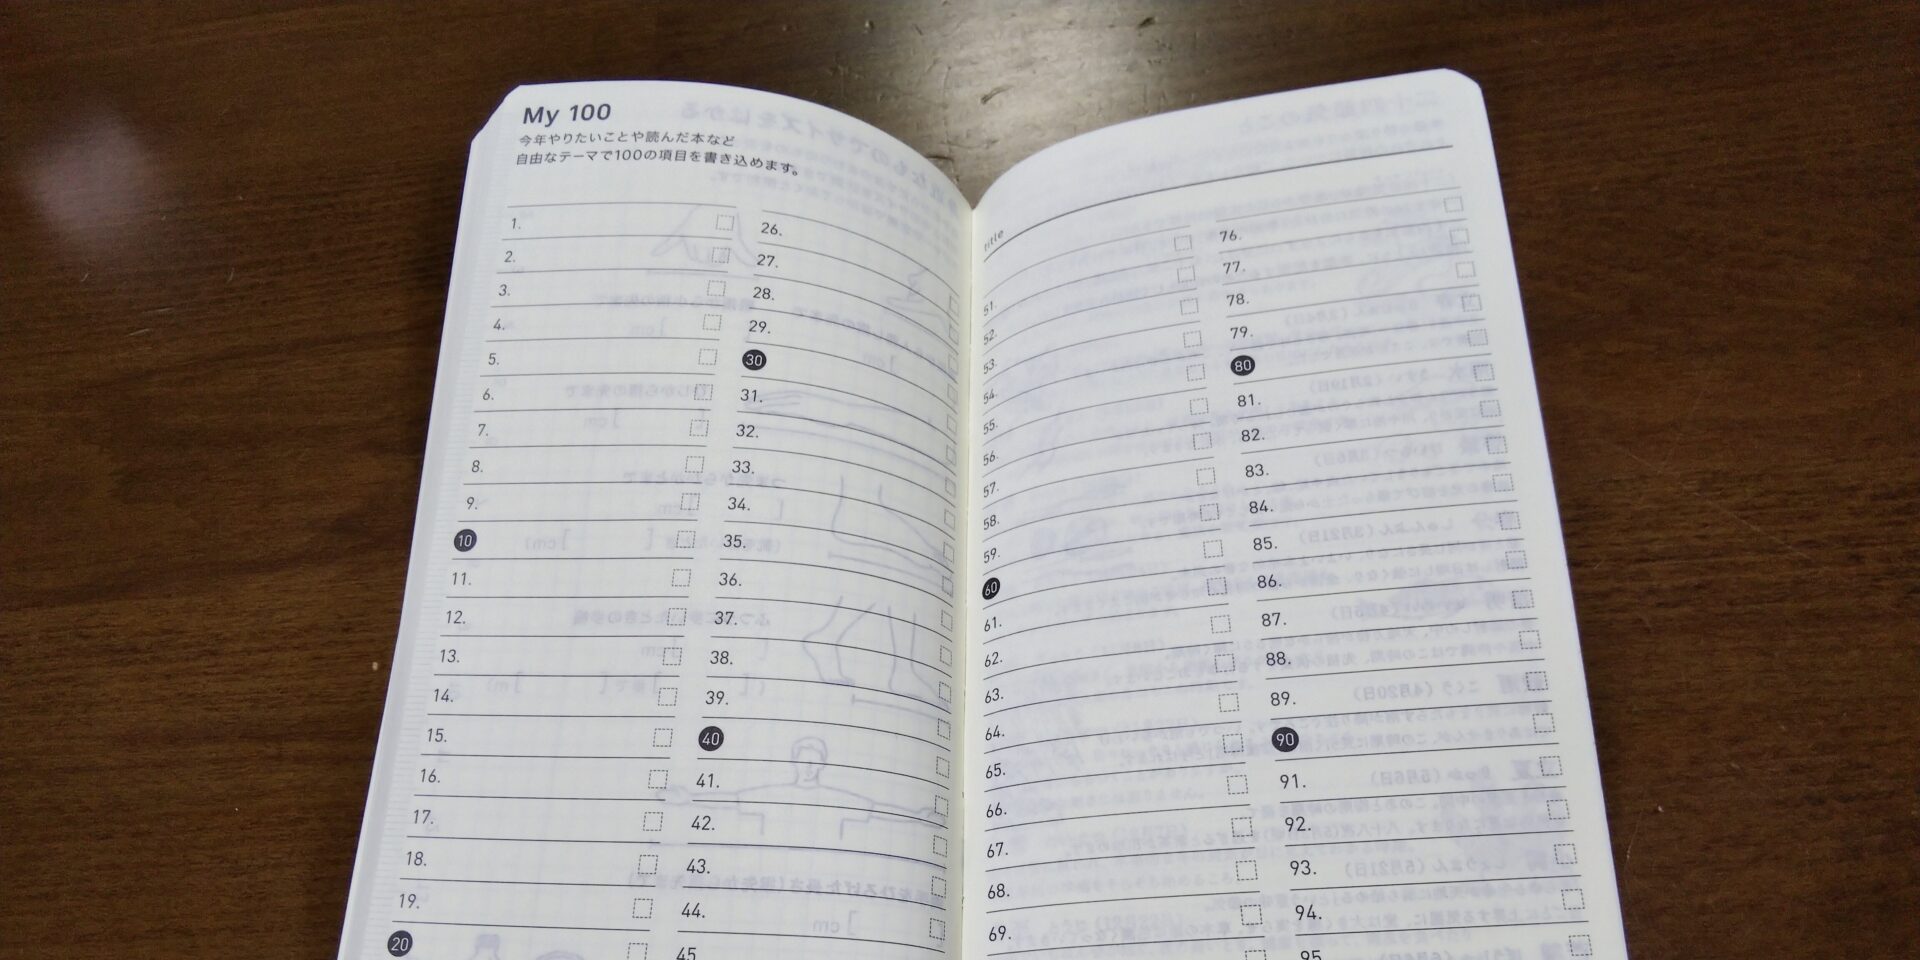 My 100
今年やりたいことや読んだ本など
自由なテーマで100の項目を書き込めます。
1.
2.
3.
4.
5.
6.
7.
8.
9.
10
11.
12.
13.
14.
15.
16.
17.
18.
19.
20
26.
27.
28.
29.
30
31.
32.
33.
34.
35.
36.
37.
38.
39.
40
41.
42.
43.
44.
45
title
51.
52.
53.
54.
55.
56.
57.
58.
59.
60
61.
62.
63.
64.
65.
66.
67.
68.
69.
76.
77.
78.
79.
80
81.
82.
83.
84.
85.
86.
87.
88.
89.
90
91.
92.
93.
94.
95